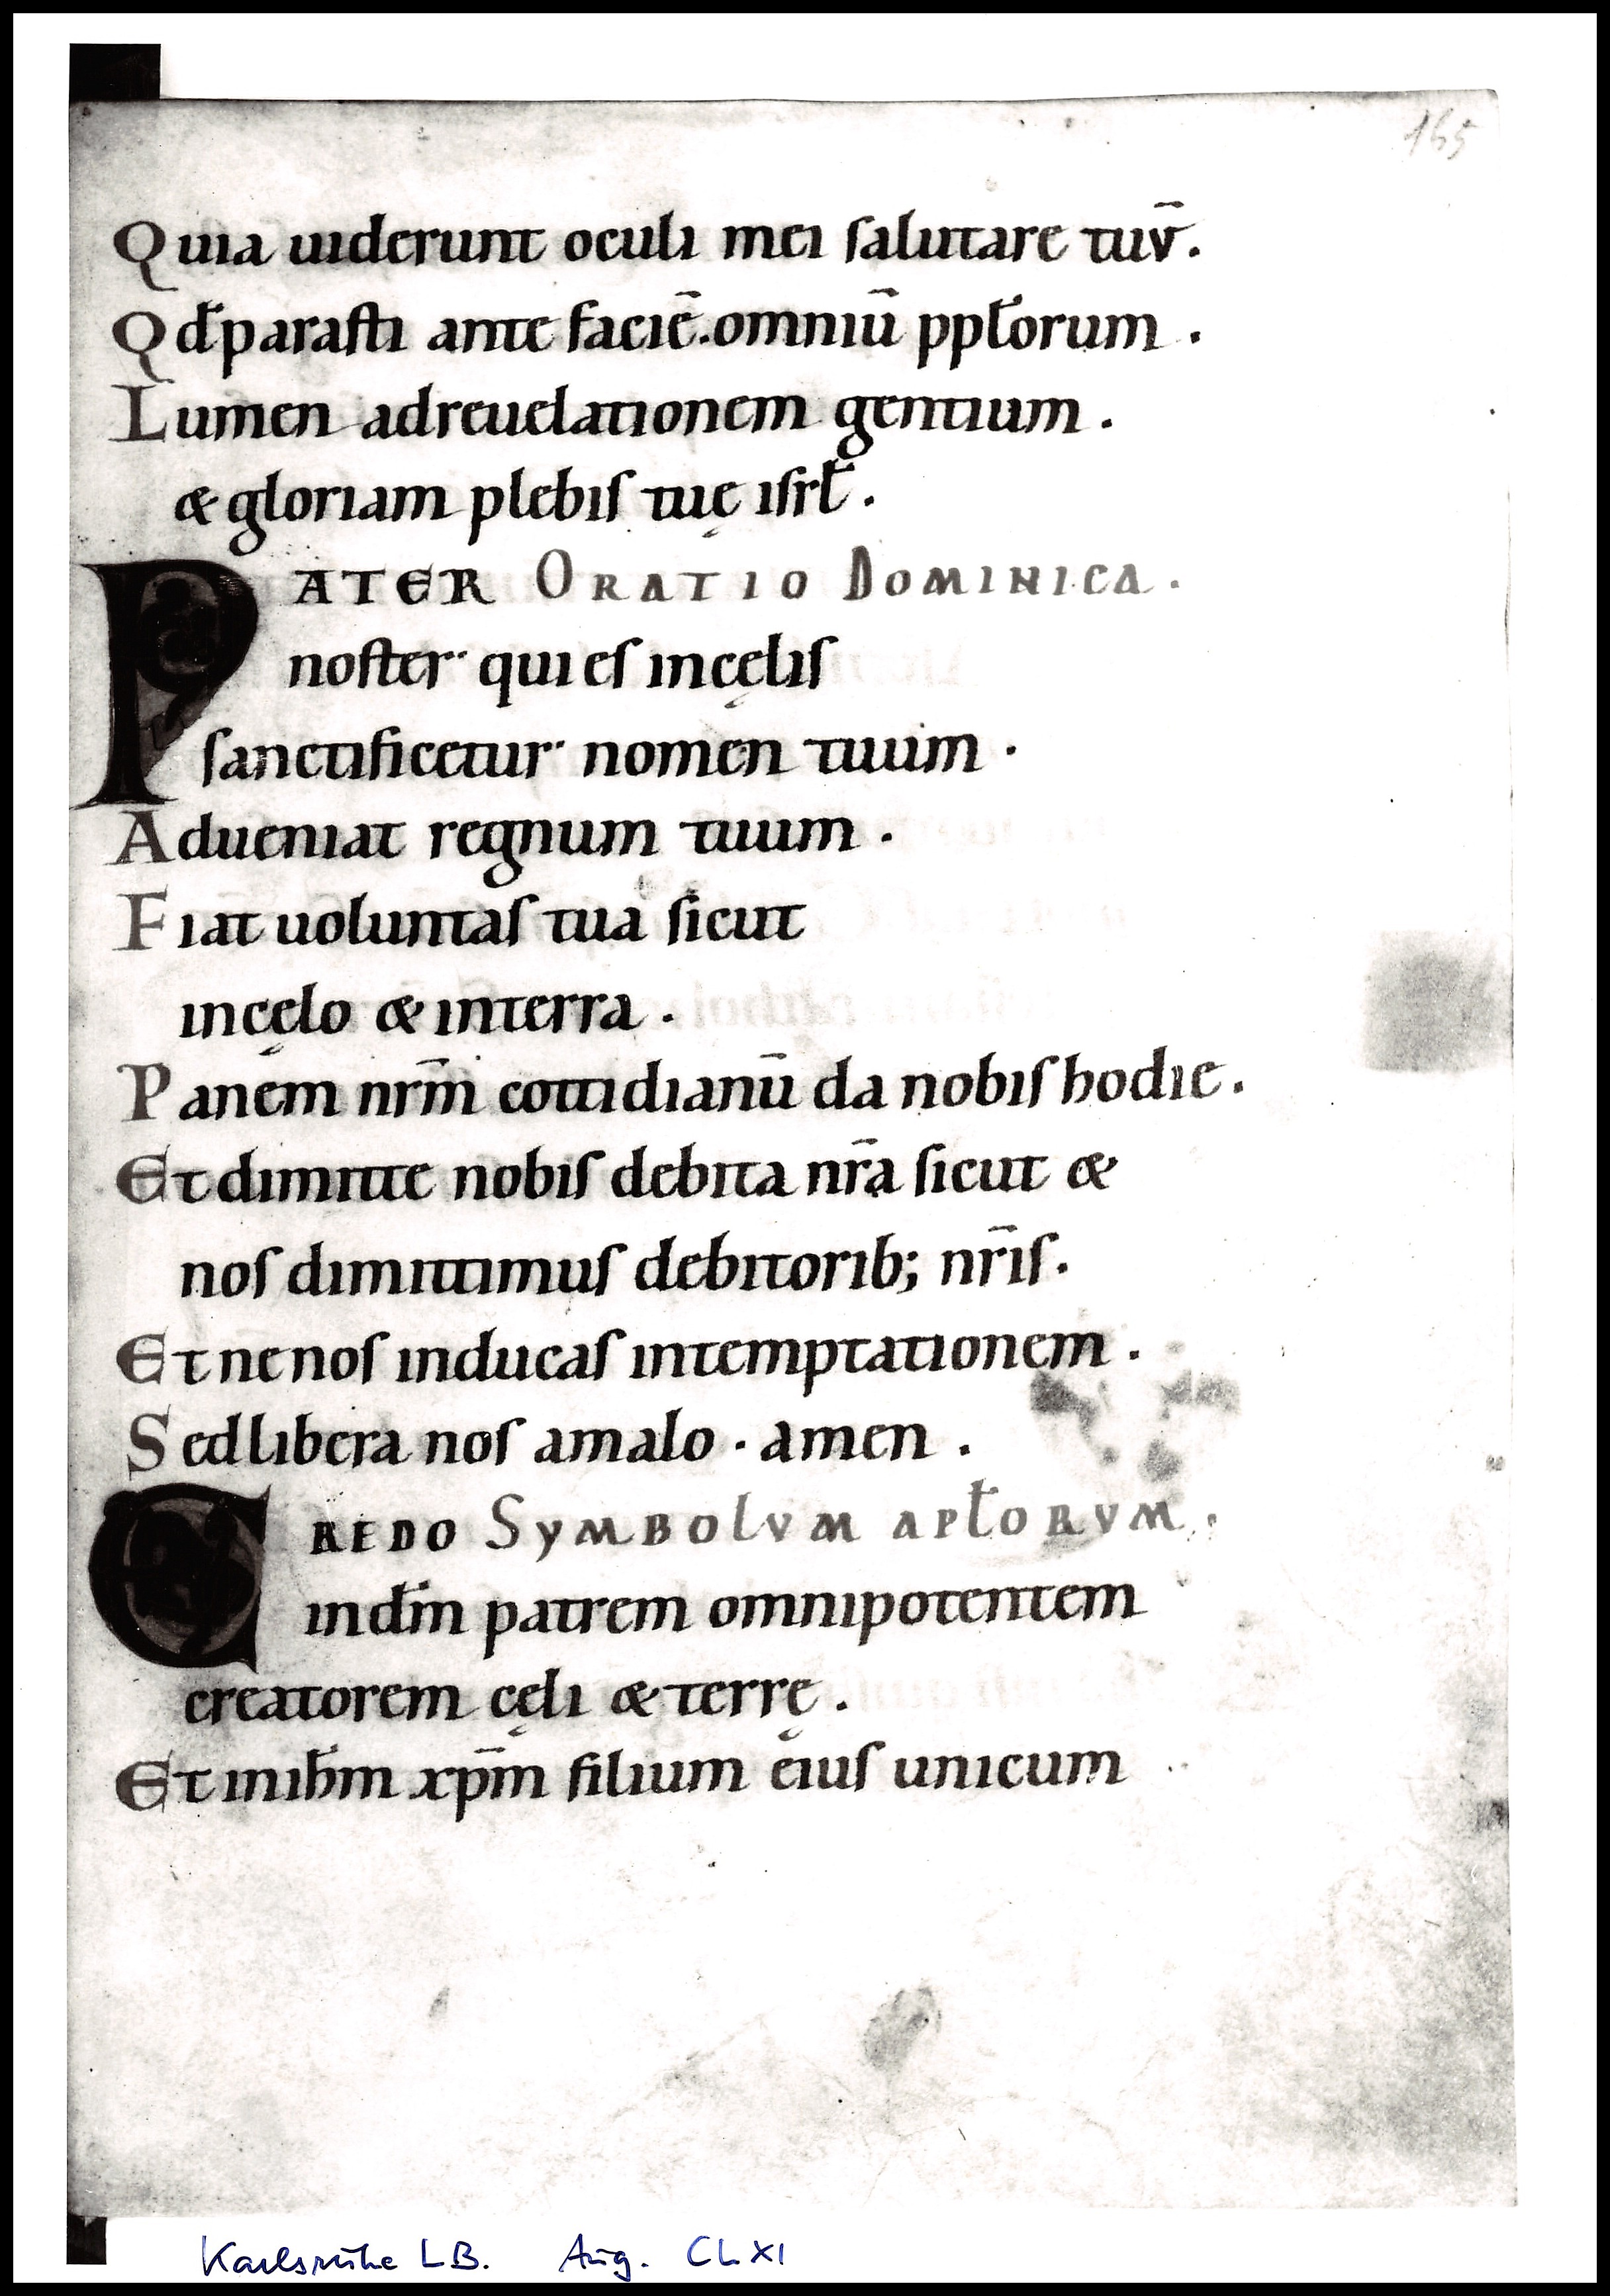 165
Quia uiderunt oculi mei ſalutare tuv̄.
Qđ paraſti ante faciē. omniū pplorum.
Lumen adreuelationem gentium.
& gloriam plebiſ tuę iſrł.
PATER ORATIO DOMINICA.
noſter qui eſ incęliſ
ſanctificetur nomen tuum.
Adueniat regnum tuum.
Fiat uoluntaſ tua ſicut
incęlo & interra.
Panem nr̄m cottidianū da nobiſ hodie.
Et dimitte nobiſ debita nr̄a ſicut &
noſ dimittimuſ debitorib; nr̄iſ.
Et ne noſ inducaſ intemptationem.
Sed libera noſ amalo. amen.
CREDO SYMBOLVM APŁORVM.
indm̄ patrem omnipotentem
creatorem cęli & terrę.
Et inihm̄ xpm̄ filium eiuſ unicum
Karlsruhe LB. Aug. CLXI